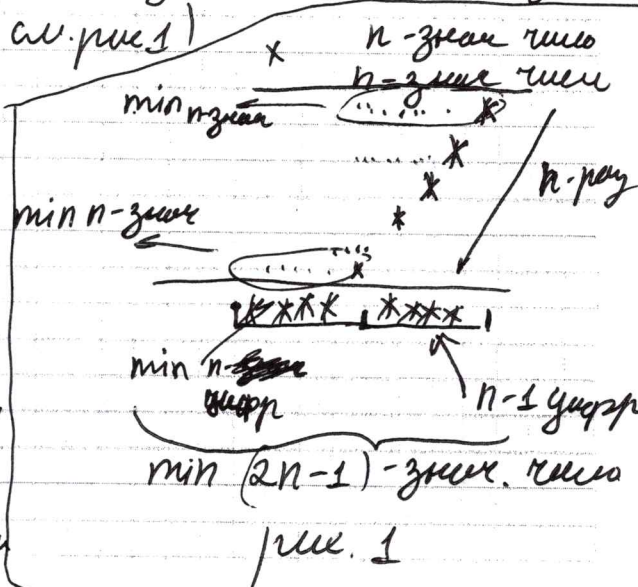 см. рис 1)
× n-знач число
n-знач числ
min n-знач
*
*
*
*
n-раз
min n-знач
*
**** ****
min n-
цифр
n-1 цифр
min (2n-1)-знач. число
рис. 1